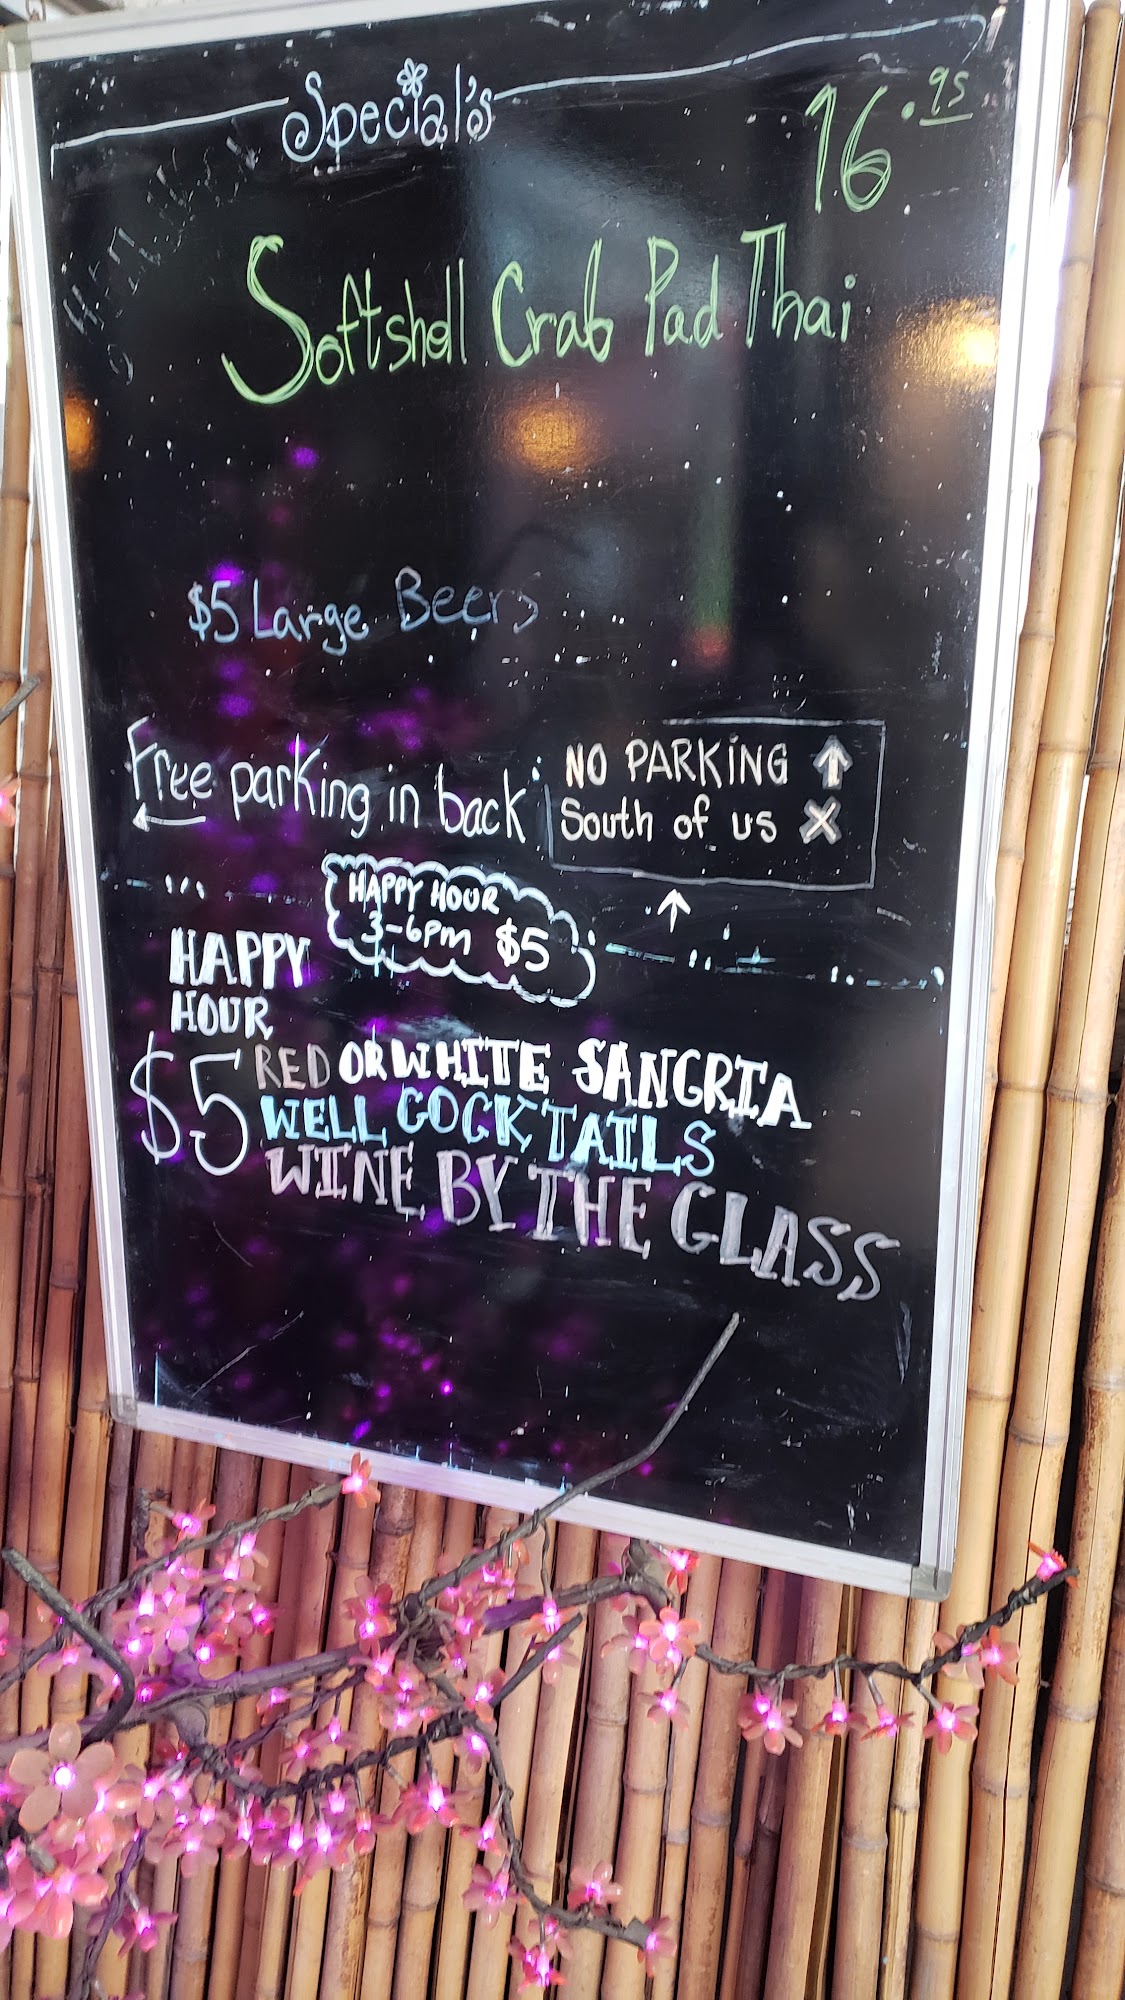 Special's
16.95
Softshell Crab Pad Thai
$5 Large Beers
Free parking in back
NO PARKING ↑
South of us X
HAPPY HOUR
3-6pm $5
HAPPY
HOUR
$5 RED OR WHITE SANGRIA
WELL COCKTAILS
WINE BY THE GLASS